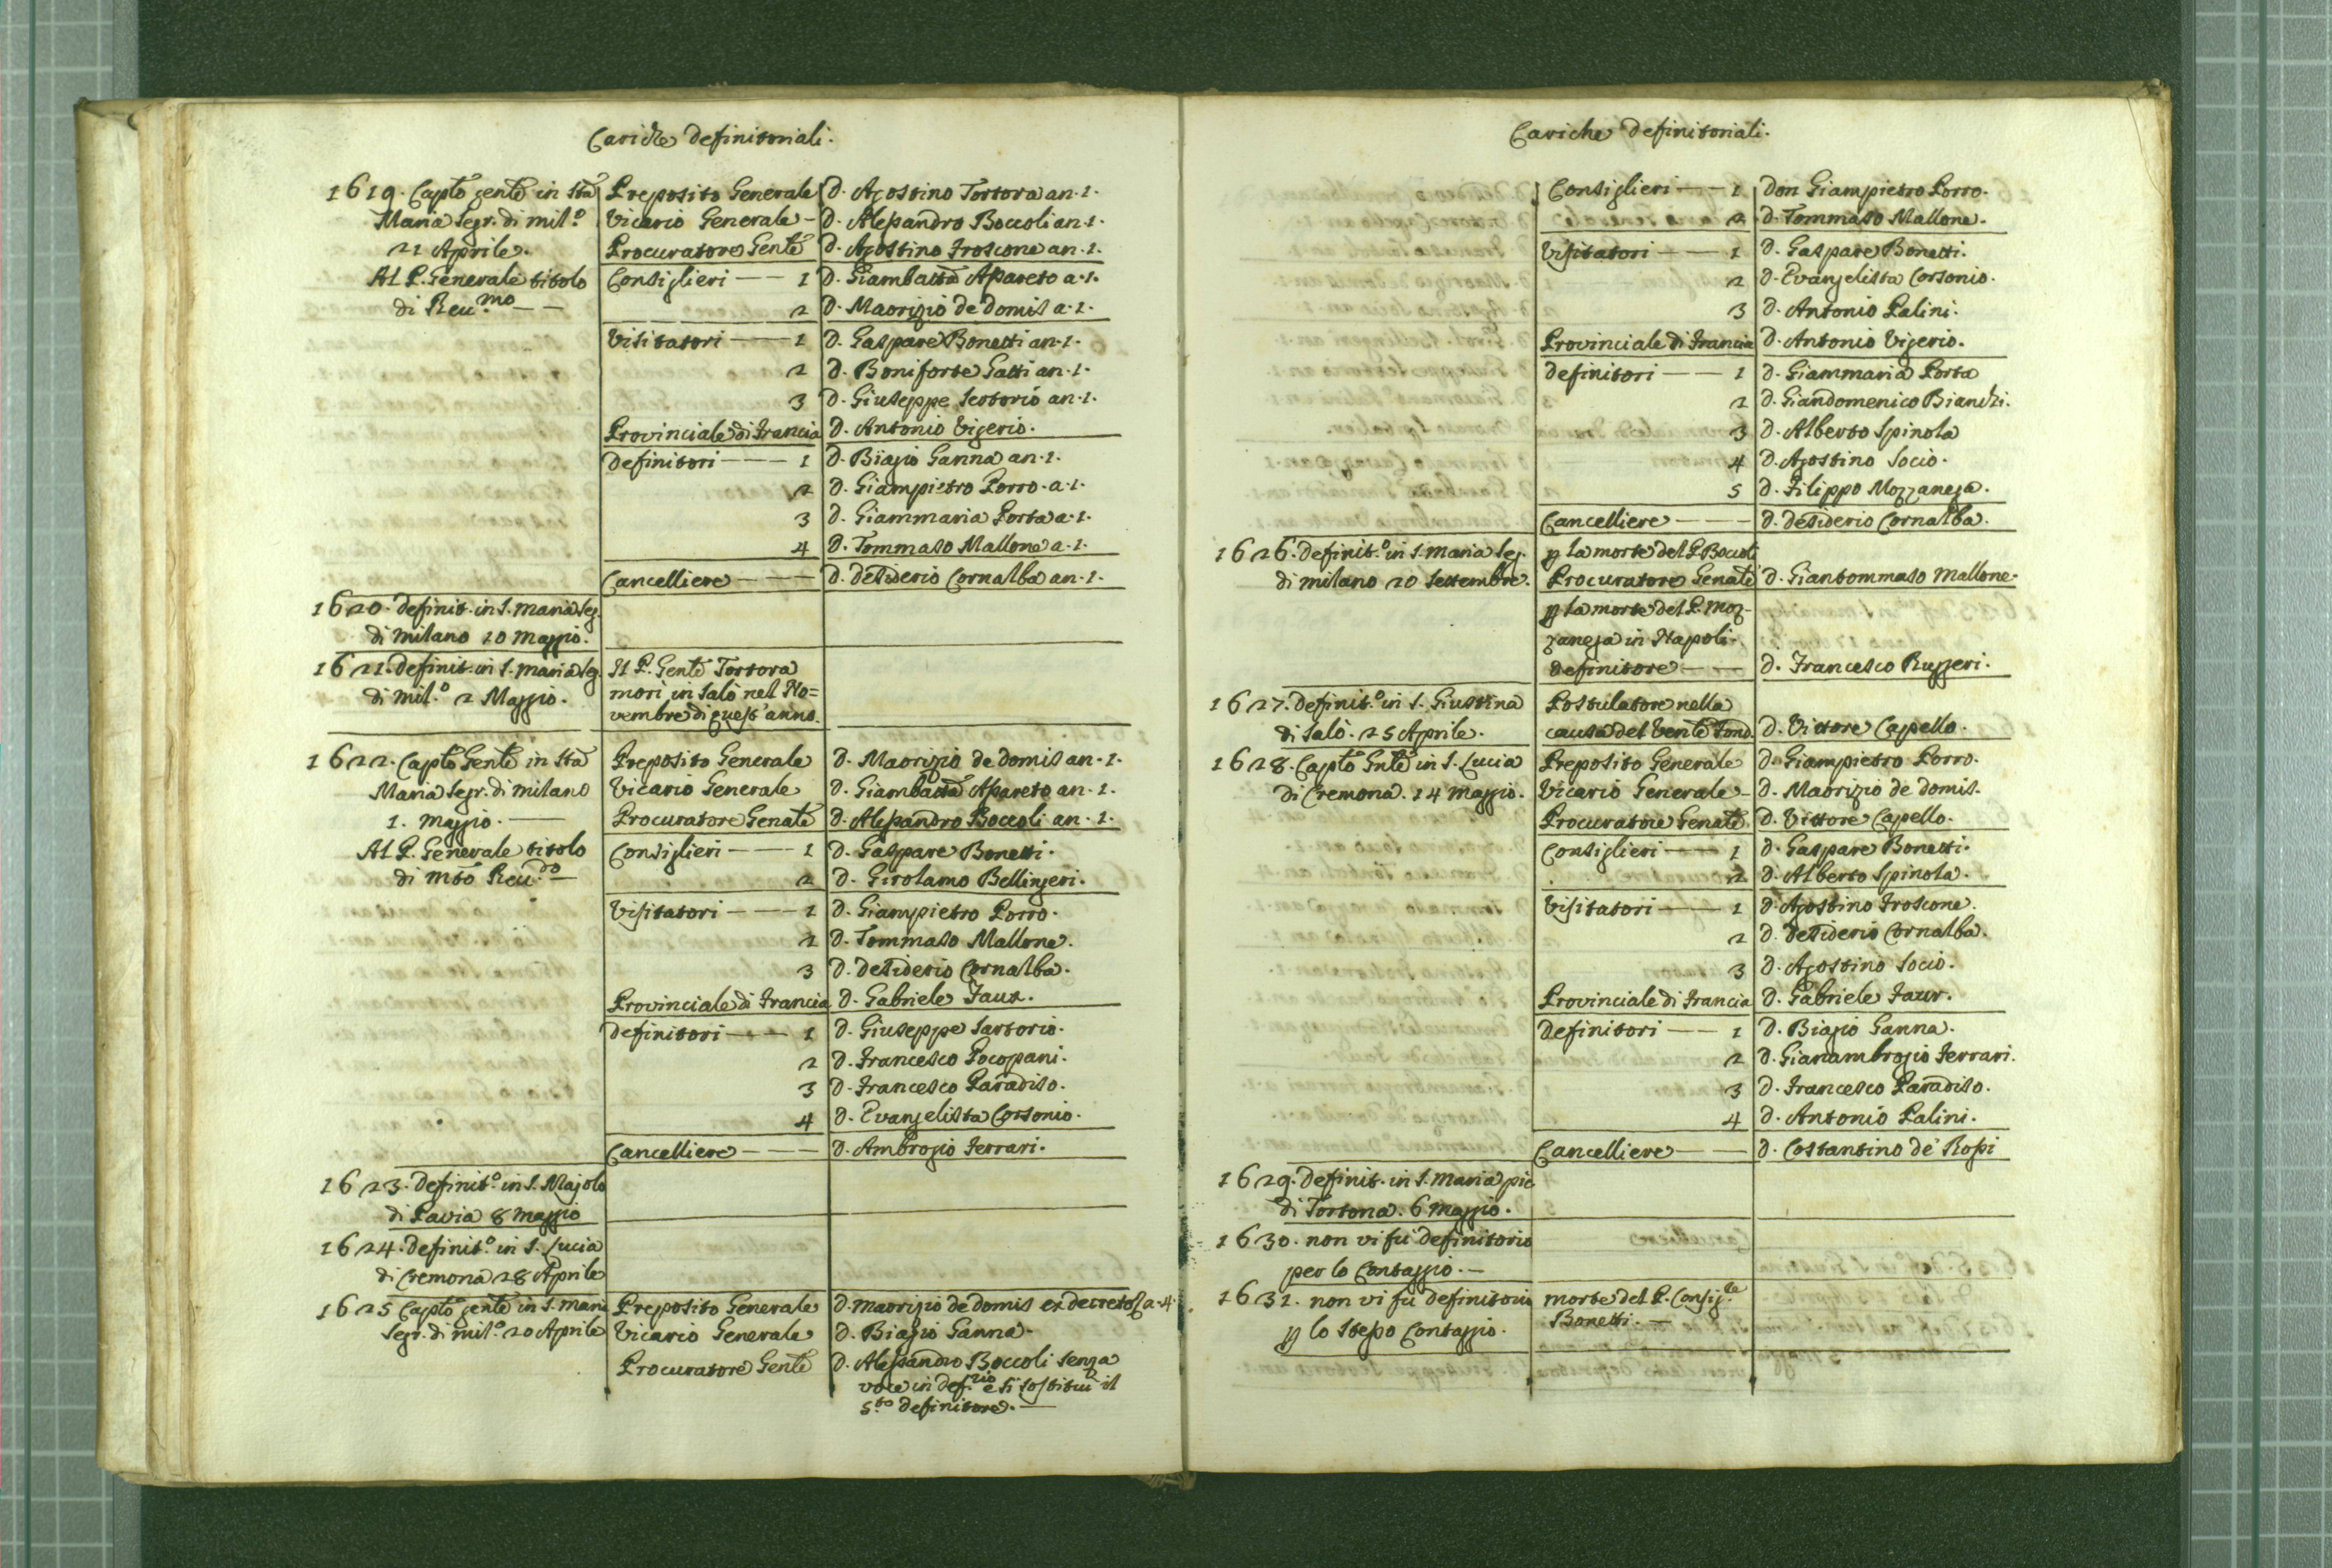 Cariche definitoriali.
1619. Capto gente in Sta Preposito Generale d. Agostino Tortora an. 1.
Maria Segr. di mil.o Vicario Generale - d. Alessandro Boccoli an. 1.
21 Aprile. Procuratore Gente d. Agostino Froscone an. 1.
Al P. Generale titolo Consiglieri — 1 d. Giambatta Assareto a. 1.
di Reu.mo — — 2 d. Maorizio de domis a. 1.
Visitatori — 1 d. Gaspare Bonetti an. 1.
2 d. Boniforte Gatti an. 1.
3 d. Giuseppe Scotorio an. 1.
Provinciale di Francia d. Antonio Vigerio.
definitori — 1 d. Biagio Ganna an. 1.
2 d. Giampietro Porro. a. 1.
3 d. Giammaria Porta a. 1.
4 d. Tommaso Mallone a. 1.
Cancelliere — d. desiderio Cornalba an. 1.
1620. definit. in S. maria Seg.
di milano 10 maggio.
1621. definit. in S. maria Seg. Il P. Gente Tortora
di mil.o 2 Maggio. morì in Salò nel No=
vembre di quest'anno.
1622. Capto Gente in Sta Preposito Generale d. Maorizio de domis an. 1.
Maria Segr. di milano Vicario Generale d. Giambatta Assareto an. 1.
1. maggio. — Procuratore Genale d. Alessandro Boccoli an. 1.
Al P. Generale titolo Consiglieri — 1 d. Gaspare Bonetti.
di mto Reu.do — 2 d. Girolamo Bellingeri.
Visitatori — 1 d. Giampietro Porro.
2 d. Tommaso Mallone.
3 d. desiderio Cornalba.
Provinciale di Francia d. Gabriele Faur.
definitori — 1 d. Giuseppe Sartorio.
2 d. Francesco Pocopani.
3 d. Francesco Paradiso.
4 d. Evangelista Corsonio.
Cancelliere — d. Ambrogio Ferrari.
1623. definit.o in S. Majolo
di Pavia 8 maggio
1624. definit.o in S. Lucia
di Cremona 28 Aprile
1625 Capto gente in S. maria Preposito Generale d. maorizio de domis ex decreto a. 4
Segr. di mil.o 20 Aprile Vicario Generale d. Biagio Ganna.
Procuratore Gente d. Alessandro Boccoli senza
voce in def.rio e si sostituì il
5.to definitore. —
Cariche definitoriali.
Consiglieri — 1 don Giampietro Porro.
2 d. Tommaso Mallone.
Visitatori — 1 d. Gaspare Bonetti.
2 d. Evangelista Corsonio.
3 d. Antonio Palini.
Provinciale di Francia d. Antonio Vigerio.
definitori — 1 d. Giammaria Porta
2 d. Giandomenico Bianchi.
3 d. Alberto Spinola
4 d. Agostino Socio.
5 d. Filippo Mozzanega.
Cancelliere — d. desiderio Cornalba.
1626. definit.o in S. maria Seg. p la morte del P. Boccoli
di milano 20 Settembre. Procuratore Genale d. Giantommaso mallone.
p la morte del P. Moz-
zanega in Napoli.
definitore — d. Francesco Ruggeri.
1627. definit.o in S. Giustina Postulatore nella
di Salò. 25 Aprile. causa del Vente Fond. d. Vittore Capello.
1628. Capto Gnle in S. Lucia Preposito Generale d. Giampietro Porro.
di Cremona. 14 maggio. Vicario Generale - d. Maorizio de domis.
Procuratore Genale. d. Vittore Capello.
Consiglieri — 1 d. Gaspare Bonetti.
2 d. Alberto Spinola.
Visitatori — 1 d. Agostino Froscone.
2 d. desiderio Cornalba.
3 d. Agostino Socio.
Provinciale di Francia d. Gabriele Faur.
definitori — 1 d. Biagio Ganna.
2 d. Gianambrogio Ferrari.
3 d. Francesco Paradiso.
4 d. Antonio Palini.
Cancelliere — d. Costantino de' Rossi
1629. definit. in S. maria pic
di Tortona. 6 maggio.
1630. non vi fù definitorio
per lo Contaggio. —
1631. non vi fù definitorio morte del P. Consig.re
p lo stesso Contaggio. Bonetti. —